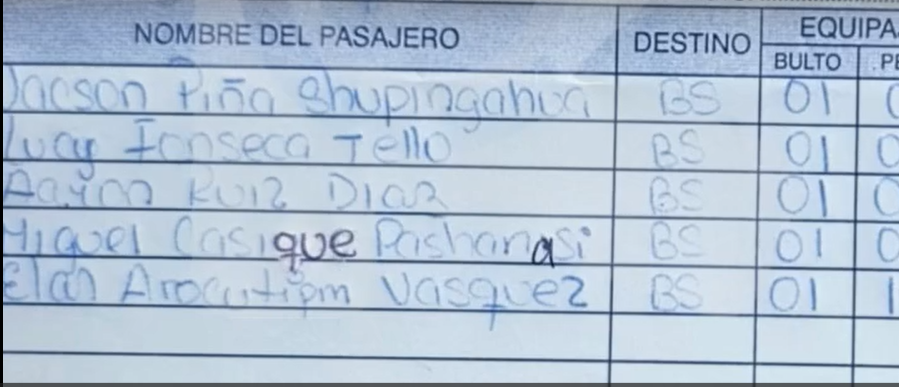 NOMBRE DEL PASAJERO DESTINO EQUIPA
BULTO PE
Jacson Piña Shupingahua BS 01 0
Lucy Fonseca Tello BS 01 0
Ruiz Diaz BS 01 0
Miguel Casique Pashanasi BS 01 0
Vasquez BS 01 1